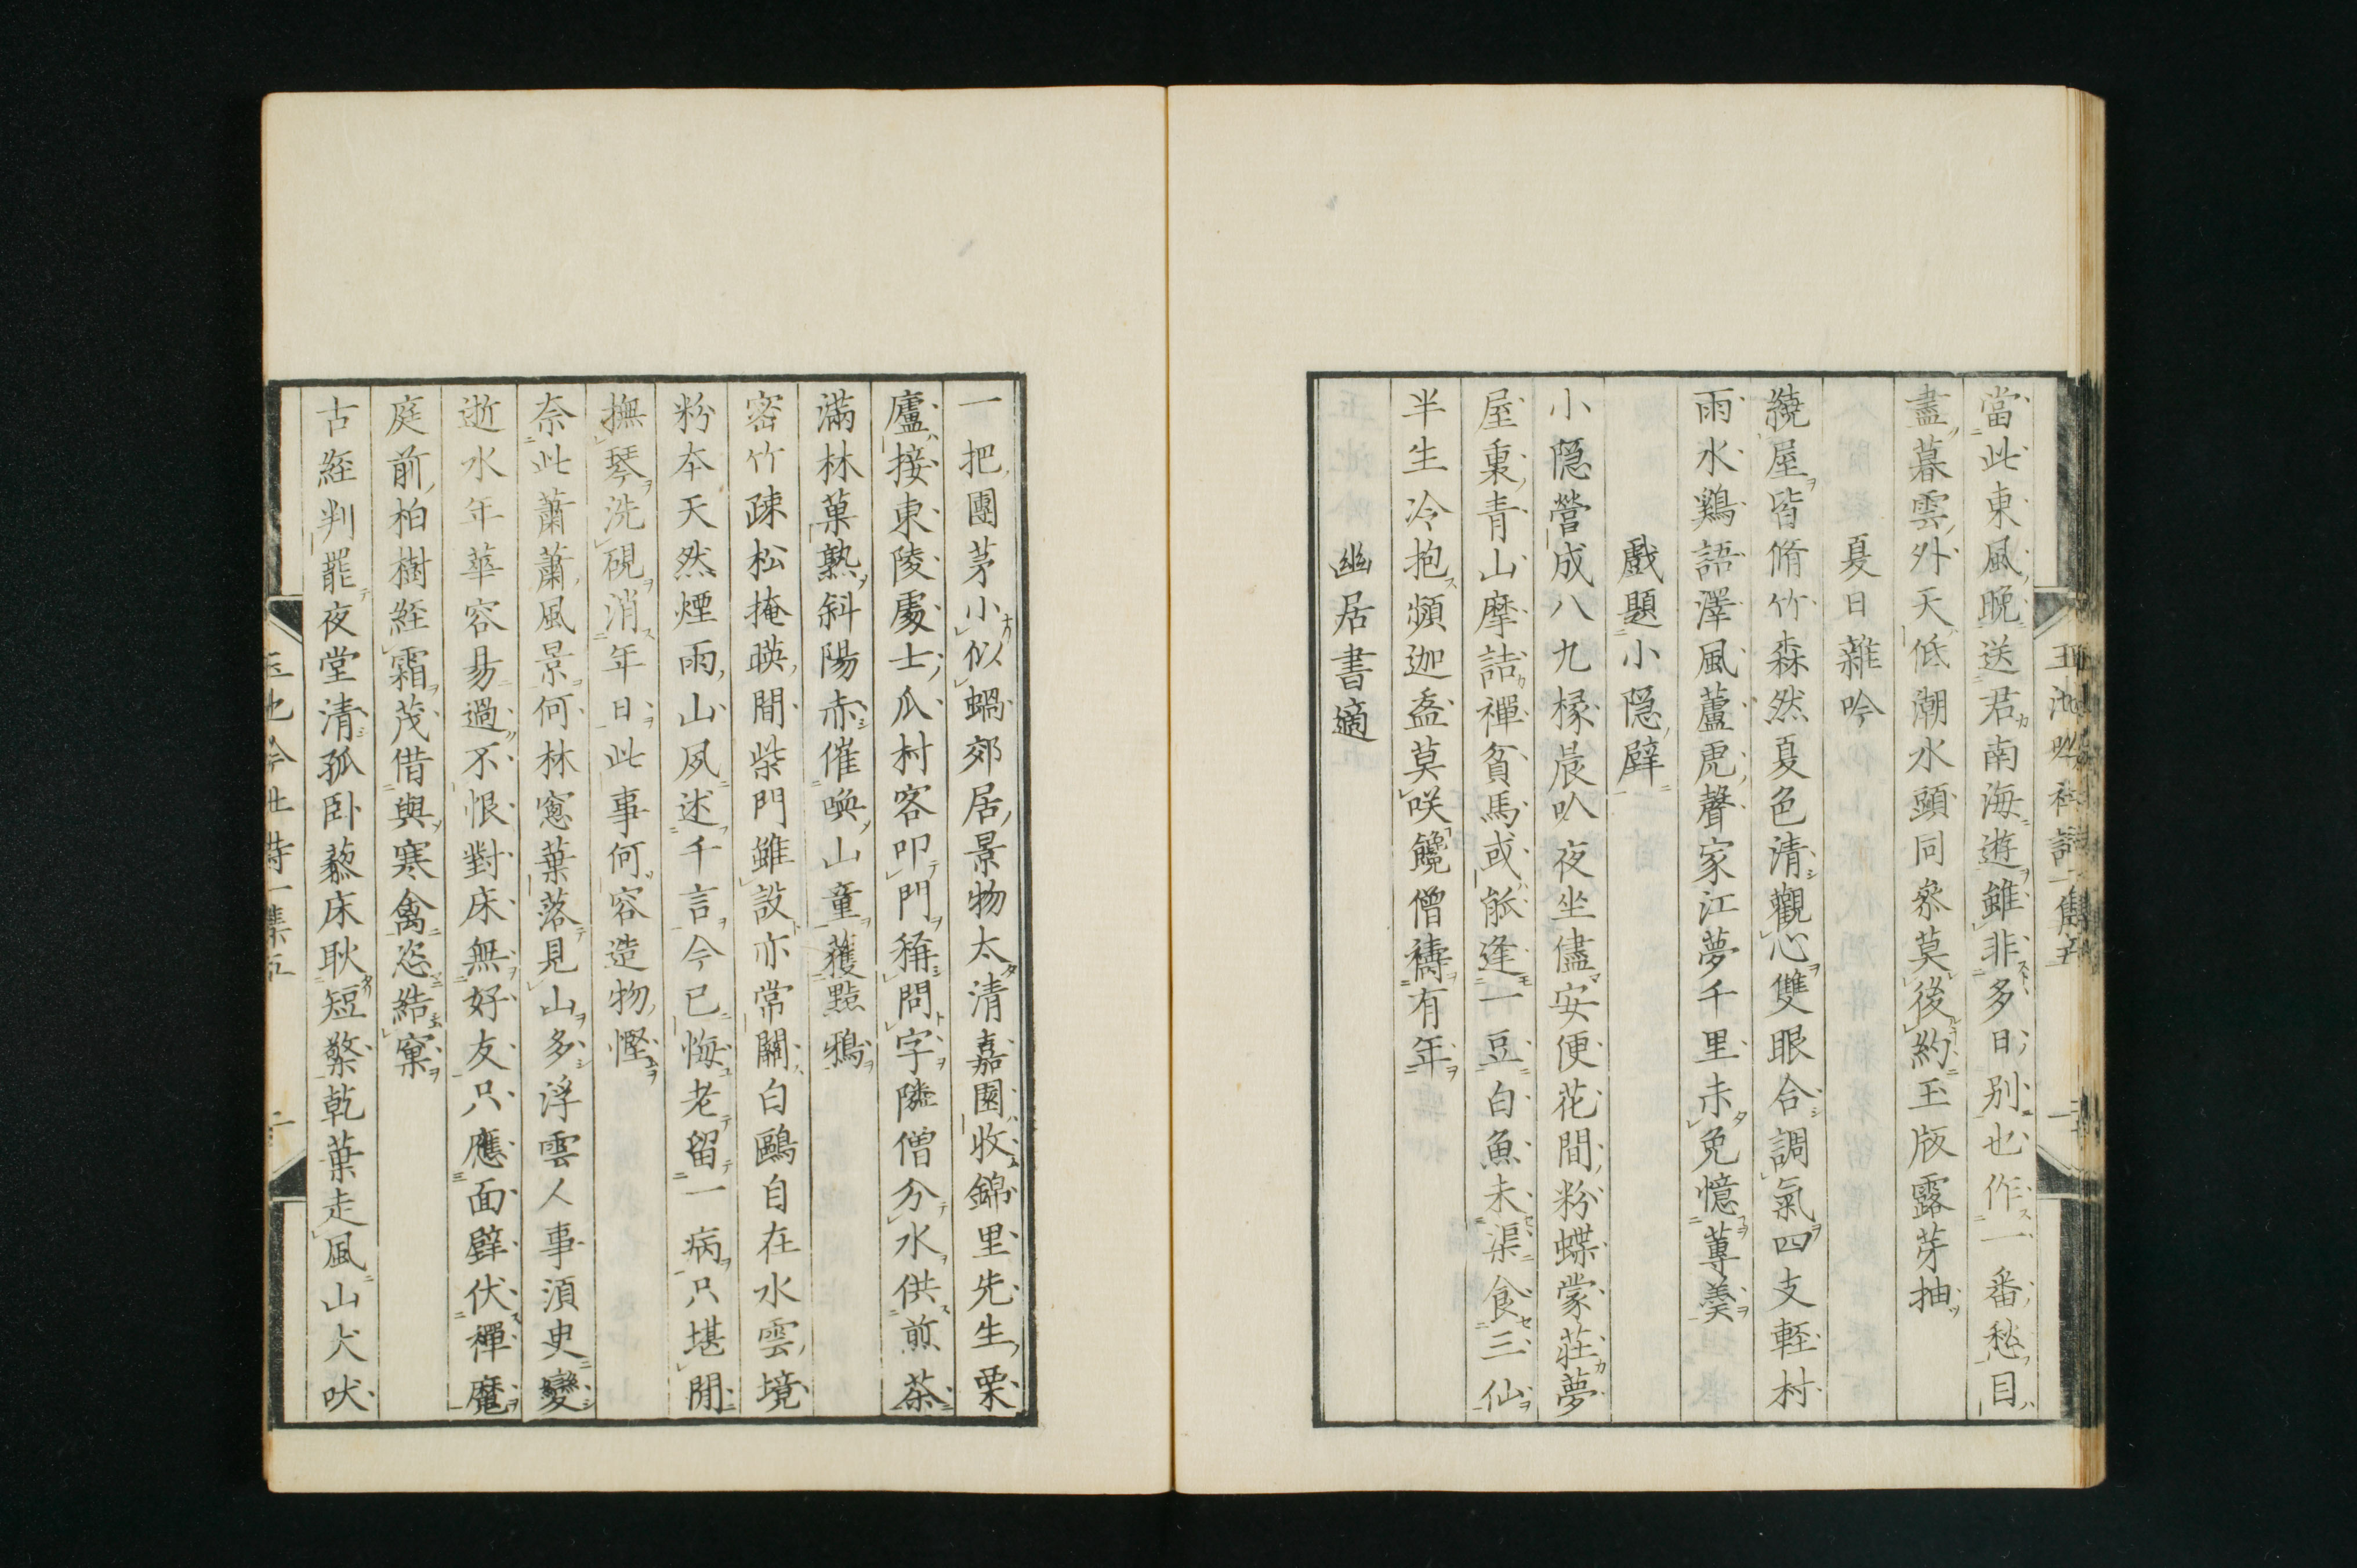 當此東風晚送君南海遊雖非多日別也作一番愁目
盡暮雲外天低潮水頭同參莫後約玉版露芽抽
夏日雜吟
繞屋皆脩竹森然夏色清觀心雙眼合調氣四支輕村
雨水鷄語澤風蘆虎聲家江夢千里未免憶蓴羹
戲題小隱壁
小隱營成八九椽晨趴夜坐儘安便花間粉蝶蒙莊夢
屋裏青山摩詰禪貧馬或能逢一豆白魚未渠食三仙
半生冷抱頻迦盋莫咲饞僧禱有年
幽居書適
一把團茅小似蝸郊居景物太清嘉園收錦里先生栗
廬接東陵處士瓜村客叩門稱問字隣僧分水供煎茶
滿林菓熟斜陽赤催喚山童護點鴉
密竹疎松掩暎間柴門雖設亦常關白鷗自在水雲境
粉本天然煙雨山夙述千言今已悔老留一病只堪閒
撫琴洗硯消年日此事何容造物慳
奈此蕭蕭風景何林窓葉落見山多浮雲人事須臾變
逝水年華容易過不恨對床無好友只應面壁伏禪魔
庭前柏樹經霜茂借與寒禽恣結窠
古經判罷夜堂清孤臥藜床耿短檠乾葉走風山犬吠
玉池吟社詩一集五
二